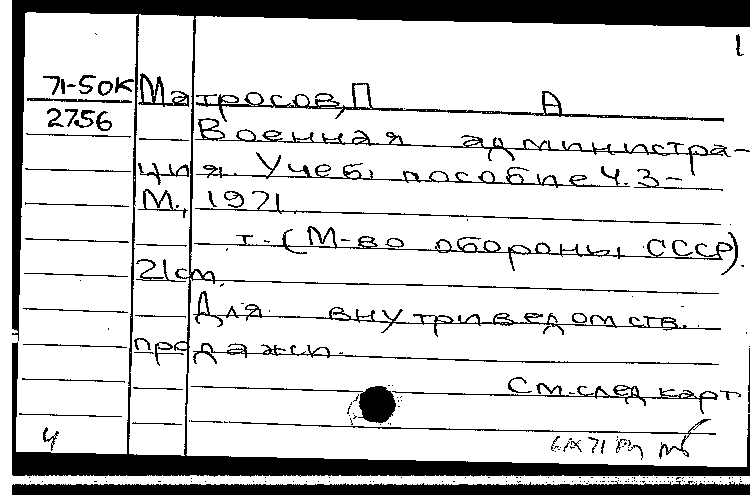 1
71-50К Матросов, П А
2756 Военная администра-
ция. Учеб. пособие Ч. 3-
М., 1971.
т. (М-во обороны СССР).
21 см.
Для внутриведомств.
продажи.
См. след карт
4